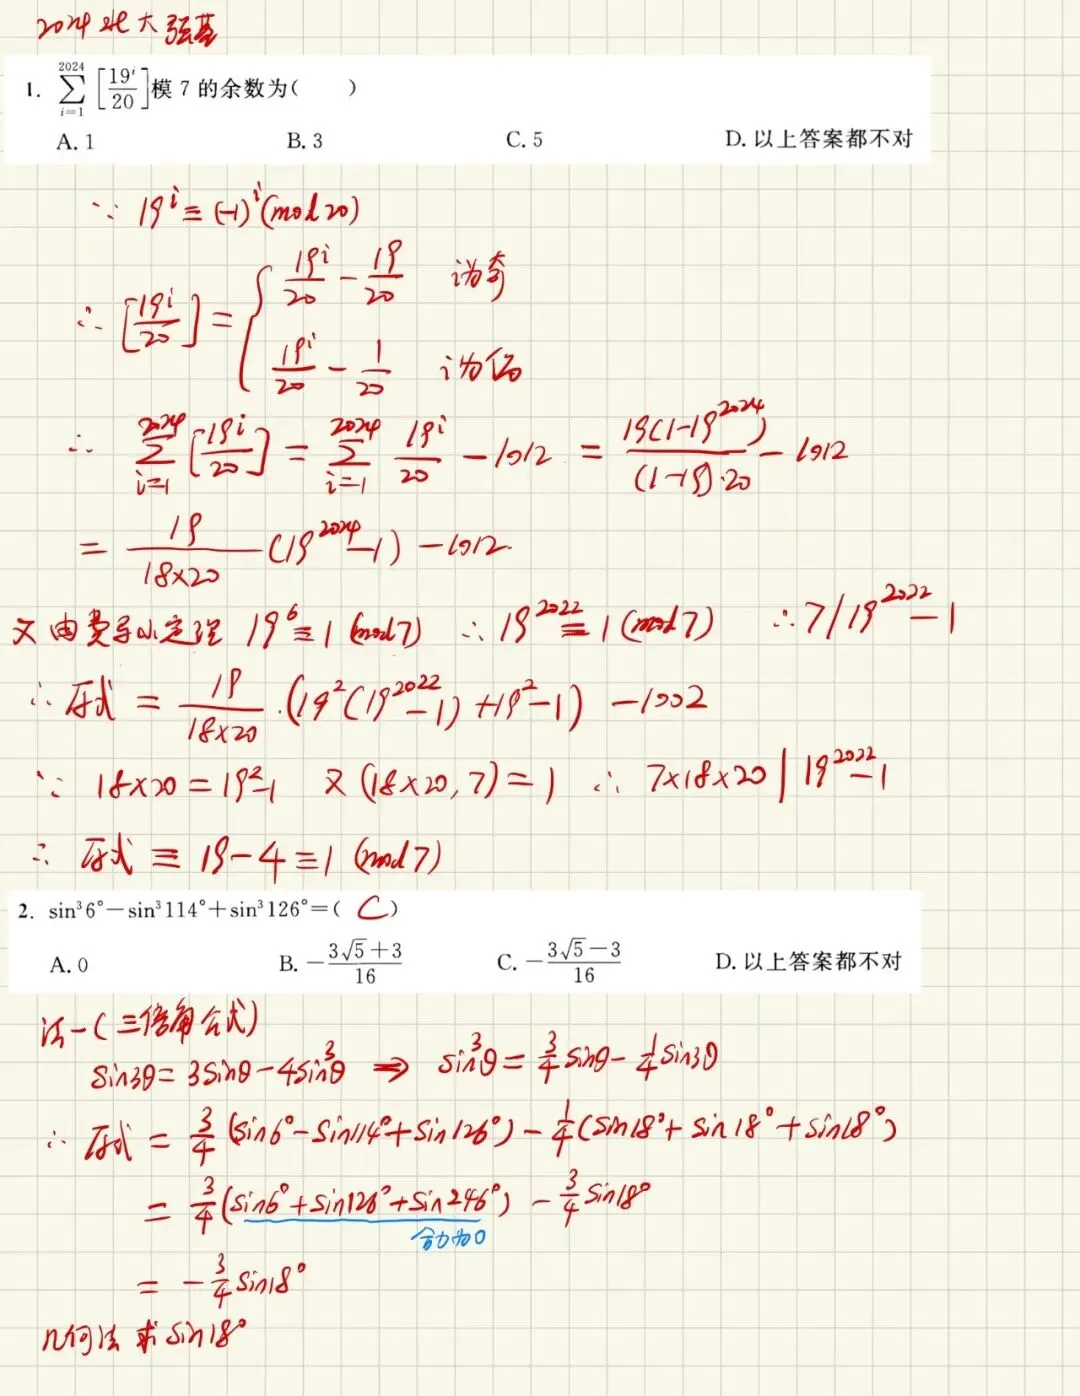 2024北大强基
1. $\sum_{i=1}^{2024}\left[\frac{19^i}{20}\right]$模 7 的余数为(　　)
A. 1　B. 3　C. 5　D. 以上答案都不对
∵ $19^i \equiv (-1)^i \pmod{20}$
∴ $\left[\frac{19^i}{20}\right] = \begin{cases} \frac{19^i}{20} - \frac{19}{20} & i为奇 \\ \frac{19^i}{20} - \frac{1}{20} & i为偶 \end{cases}$
∴ $\sum_{i=1}^{2024}\left[\frac{19^i}{20}\right] = \sum_{i=1}^{2024}\frac{19^i}{20} - 1012 = \frac{19(1-19^{2024})}{(1-19)\cdot 20} - 1012$
$= \frac{19}{18×20}(19^{2024}-1) - 1012.$
又由费马小定理 $19^6 \equiv 1 \pmod 7$ ∴ $19^{2022} \equiv 1 \pmod 7$ ∴ $7 / 19^{2022}-1$
∴ 原式 $= \frac{19}{18×20}\cdot(19^2(19^{2022}-1)+19^2-1) - 1002$
∵ $18×20 = 19^2-1$ 又 $(18×20, 7)=1$ ∴ $7×18×20 \mid 19^{2022}-1$
∴ 原式 $\equiv 19-4 \equiv 1 \pmod 7$
2. $\sin^3 6°-\sin^3 114°+\sin^3 126°=$( C )
A. 0　B. $-\frac{3\sqrt{5}+3}{16}$　C. $-\frac{3\sqrt{5}-3}{16}$　D. 以上答案都不对
法一(三倍角公式)
$\sin3θ = 3\sinθ - 4\sin^3θ$ ⇒ $\sin^3θ = \frac{3}{4}\sinθ - \frac{1}{4}\sin3θ$
∴ 原式 $= \frac{3}{4}(\sin6°-\sin114°+\sin126°) - \frac{1}{4}(\sin18°+\sin18°+\sin18°)$
$= \frac{3}{4}(\sin6°+\sin126°+\sin246°) - \frac{3}{4}\sin18°$
合力为0
$= -\frac{3}{4}\sin18°$
几何法求 $\sin18°$